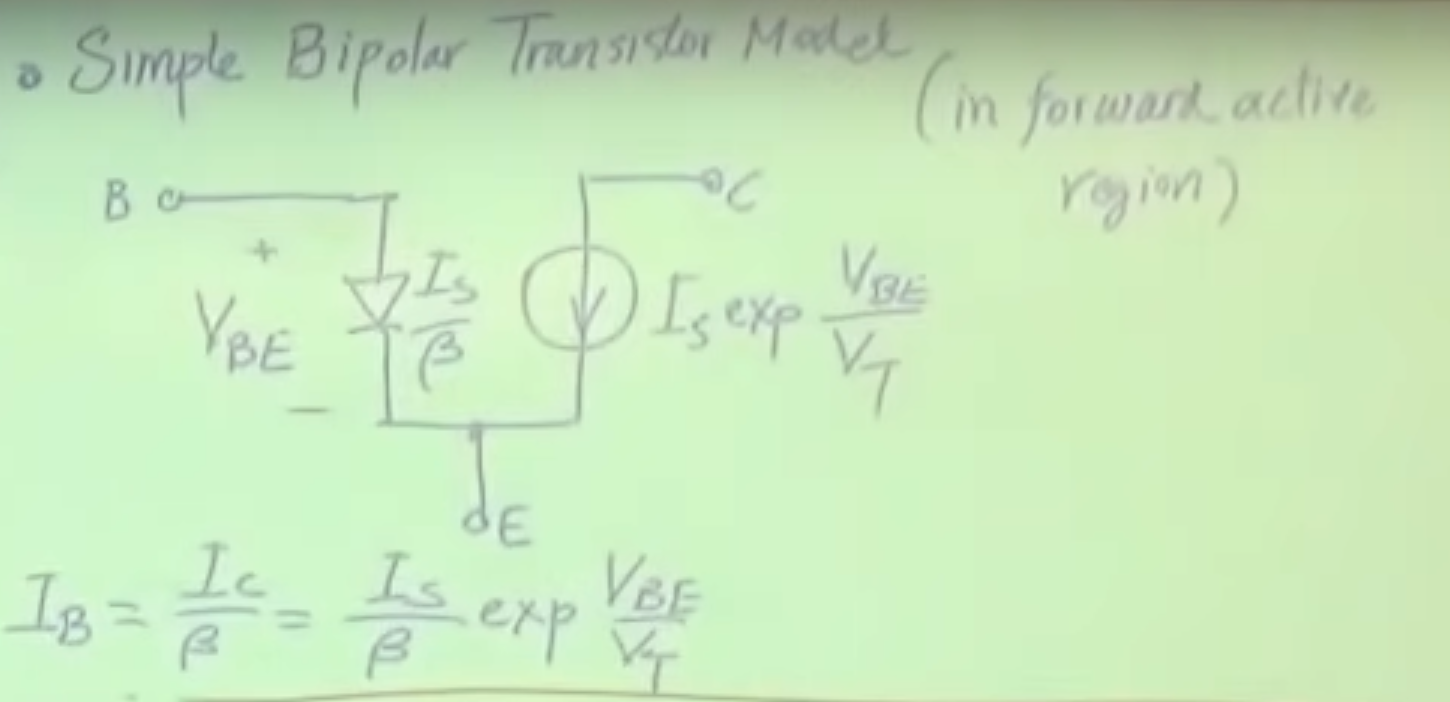 • Simple Bipolar Transistor Model
(in forward active
region)
B
C
+
V_BE
−
I_S/β
I_S exp V_BE/V_T
E
I_B = I_C/β = I_S/β exp V_BE/V_T